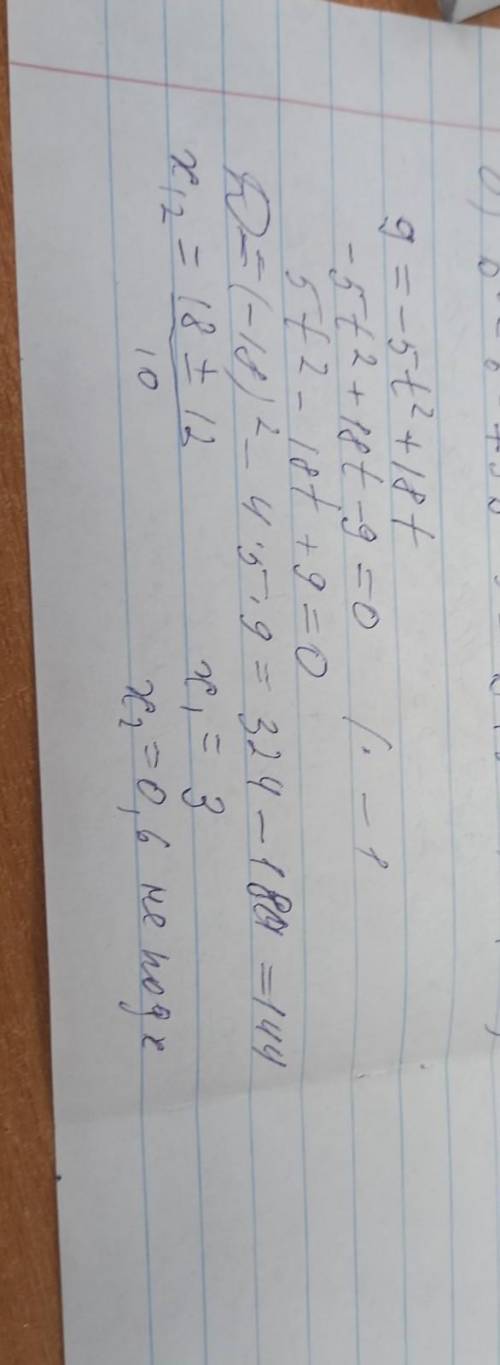 9 = -5t² + 18t
-5t² + 18t - 9 = 0 /· -1
5t² - 18t + 9 = 0
D = (-18)² - 4·5·9 = 324 - 180 = 144
x₁,₂ = (18 ± 12)/10 x₁ = 3
x₂ = 0,6 не подх